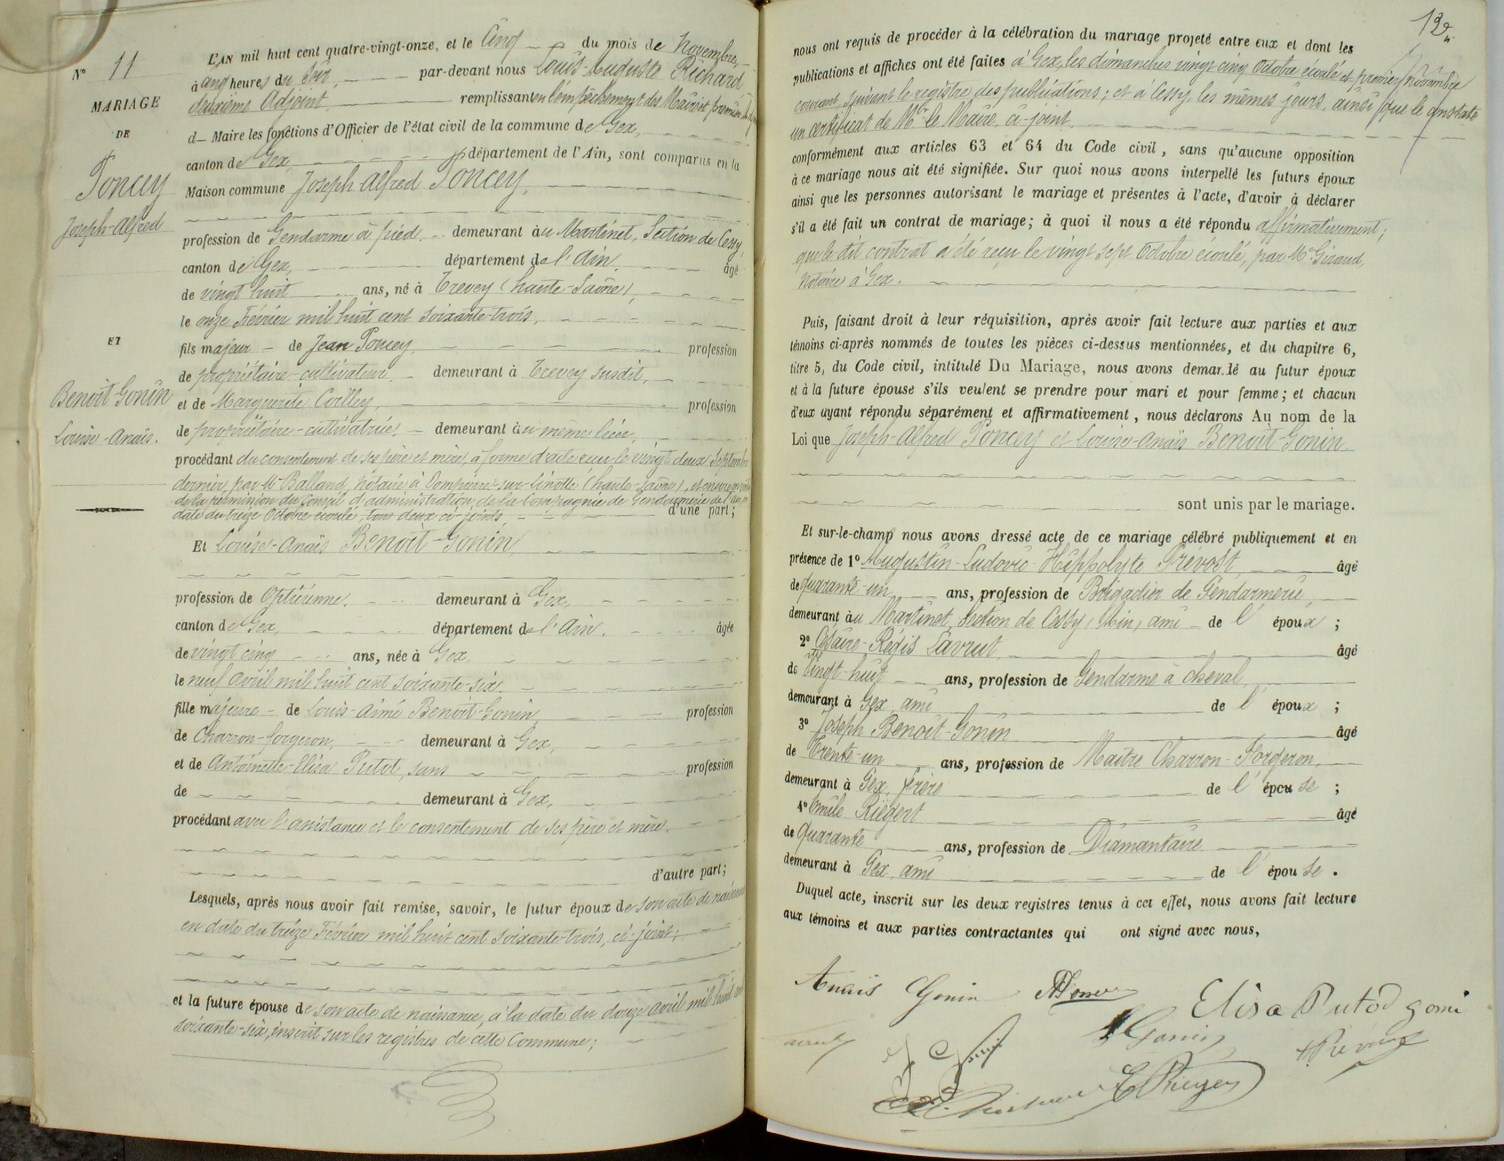 N° 11
MARIAGE
DE
Poncey
Joseph-Alfred
ET
Benoit-Gonin
Louise-Anaïs.
L'AN mil huit cent quatre-vingt-onze, et le Cinq du mois de Novembre,
à cinq heures du soir, par-devant nous Louis-Auguste Richard
deuxième Adjoint remplissant en l'empêchement du Maire et premier
d Maire les fonctions d'Officier de l'état civil de la commune de Gex,
canton de Gex département de l'Ain, sont comparus en la
Maison commune Joseph Alfred Poncey,
profession de Gendarme à pied, demeurant au Martinet, Section de Cessy,
canton de Gex, département de l'Ain, âgé
de vingt huit ans, né à Trevey (haute-Saône),
le onze Février mil huit cent soixante-trois,
fils majeur de Jean Poncey, profession
de propriétaire-cultivateur, demeurant à Trevey susdit,
et de Marguerite profession
de propriétaire-cultivatrice, demeurant au même lieu,
procédant du consentement de ses père et mère, à forme d'acte reçu le vingt deux Septembre
dernier, par Mr Balland, notaire à Dampierre-sur-Linotte (haute-Saône), et en vertu
de la permission du Conseil d'administration de la Compagnie de Gendarmerie de l'Ain en
date du treize Octobre écoulé, tous deux ci-joints, d'une part;
Et Louise-Anaïs Benoit-Gonin
profession de Opticienne, demeurant à Gex,
canton de Gex, département de l'Ain, âgée
de vingt cinq ans, née à Gex
le neuf Avril mil huit cent soixante-six,
fille majeure de Louis-Aimé Benoit-Gonin, profession
de Charron-forgeron, demeurant à Gex,
et de Antoinette-Elisa Putod, sans profession
de demeurant à Gex,
procédant avec l'assistance et le consentement de ses père et mère.
d'autre part;
Lesquels, après nous avoir fait remise, savoir, le futur époux de son acte de naissance
en date du treize Février mil huit cent soixante-trois, ci-joint;
et la future épouse de son acte de naissance, à la date du douze avril mil huit cent
soixante-six, inscrit sur les registres de cette Commune;
nous ont requis de procéder à la célébration du mariage projeté entre eux et dont les
publications et affiches ont été faites à Gex, les dimanches vingt cinq Octobre écoulé et premier Novembre
courant, suivant le registre des publications; et à Cessy, les mêmes jours ainsi que le constate
un certificat de Mr le Maire, ci-joint.
conformément aux articles 63 et 64 du Code civil, sans qu'aucune opposition
à ce mariage nous ait été signifiée. Sur quoi nous avons interpellé les futurs époux
ainsi que les personnes autorisant le mariage et présentes à l'acte, d'avoir à déclarer
s'il a été fait un contrat de mariage; à quoi il nous a été répondu affirmativement;
que le dit contrat a été reçu le vingt sept Octobre écoulé, par Mr Giraud,
notaire à Gex.
Puis, faisant droit à leur réquisition, après avoir fait lecture aux parties et aux
témoins ci-après nommés de toutes les pièces ci-dessus mentionnées, et du chapitre 6,
titre 5, du Code civil, intitulé Du Mariage, nous avons demandé au futur époux
et à la future épouse s'ils veulent se prendre pour mari et pour femme; et chacun
d'eux ayant répondu séparément et affirmativement, nous déclarons Au nom de la
Loi que Joseph-Alfred Poncey et Louise-Anaïs Benoit-Gonin
sont unis par le mariage.
Et sur-le-champ nous avons dressé acte de ce mariage célébré publiquement et en
présence de 1° Augustin-Ludovic-Hippolyte Prévost âgé
de quarante-un ans, profession de Brigadier de Gendarmerie,
demeurant au Martinet, Section de Cessy, (Ain) ami de l'époux;
2° Césaire-Régis Lavrut âgé
de vingt-huit ans, profession de Gendarme à cheval,
demeurant à Gex, ami de l'époux;
3° Joseph Benoit-Gonin âgé
de Trente-un ans, profession de Maître Charron-Forgeron,
demeurant à Gex, frère de l'épouse;
4° Emile Riegert âgé
de Quarante ans, profession de Diamantaire
demeurant à Gex, ami de l'épouse.
Duquel acte, inscrit sur les deux registres tenus à cet effet, nous avons fait lecture
aux témoins et aux parties contractantes qui ont signé avec nous,
Anaïs Gonin
Elisa Putod gonin